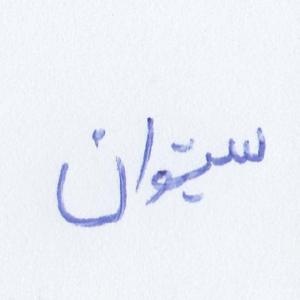 سيتوان